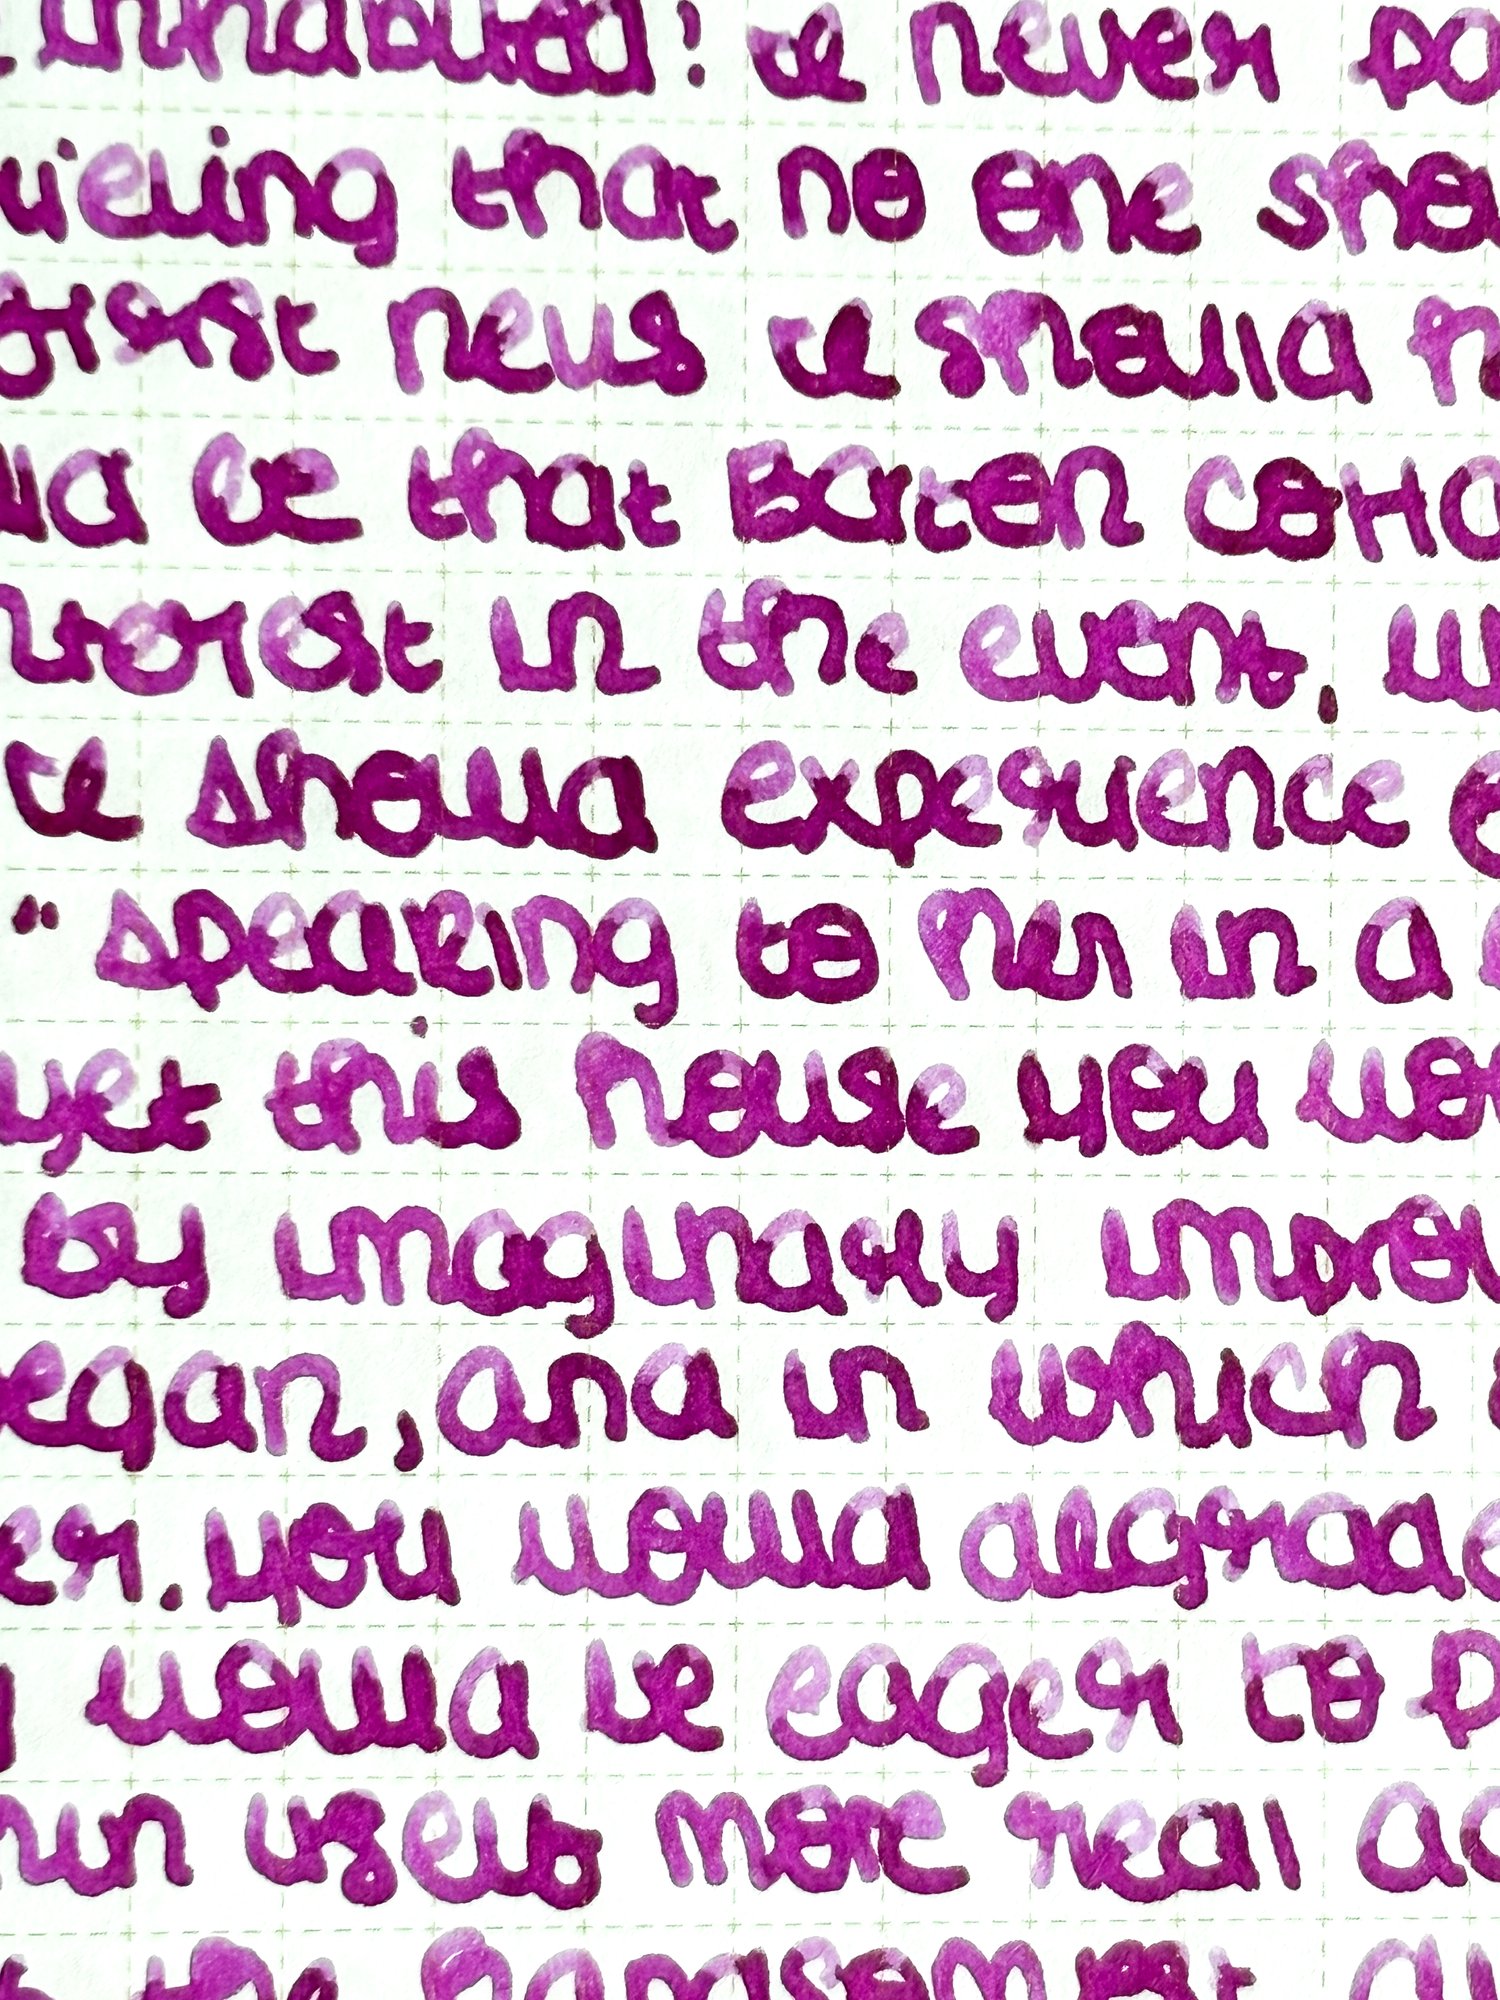 inhabited! I never pa
rieving that no one shou
first news I should h
ld be that Barton cotta
worst in the event, w
I should experience e
" speaking to her in a
yet this house you wou
by imaginary improv
egan, and in which
er. you would degrade
would be eager to p
hin itself more real ac
the handsomest di